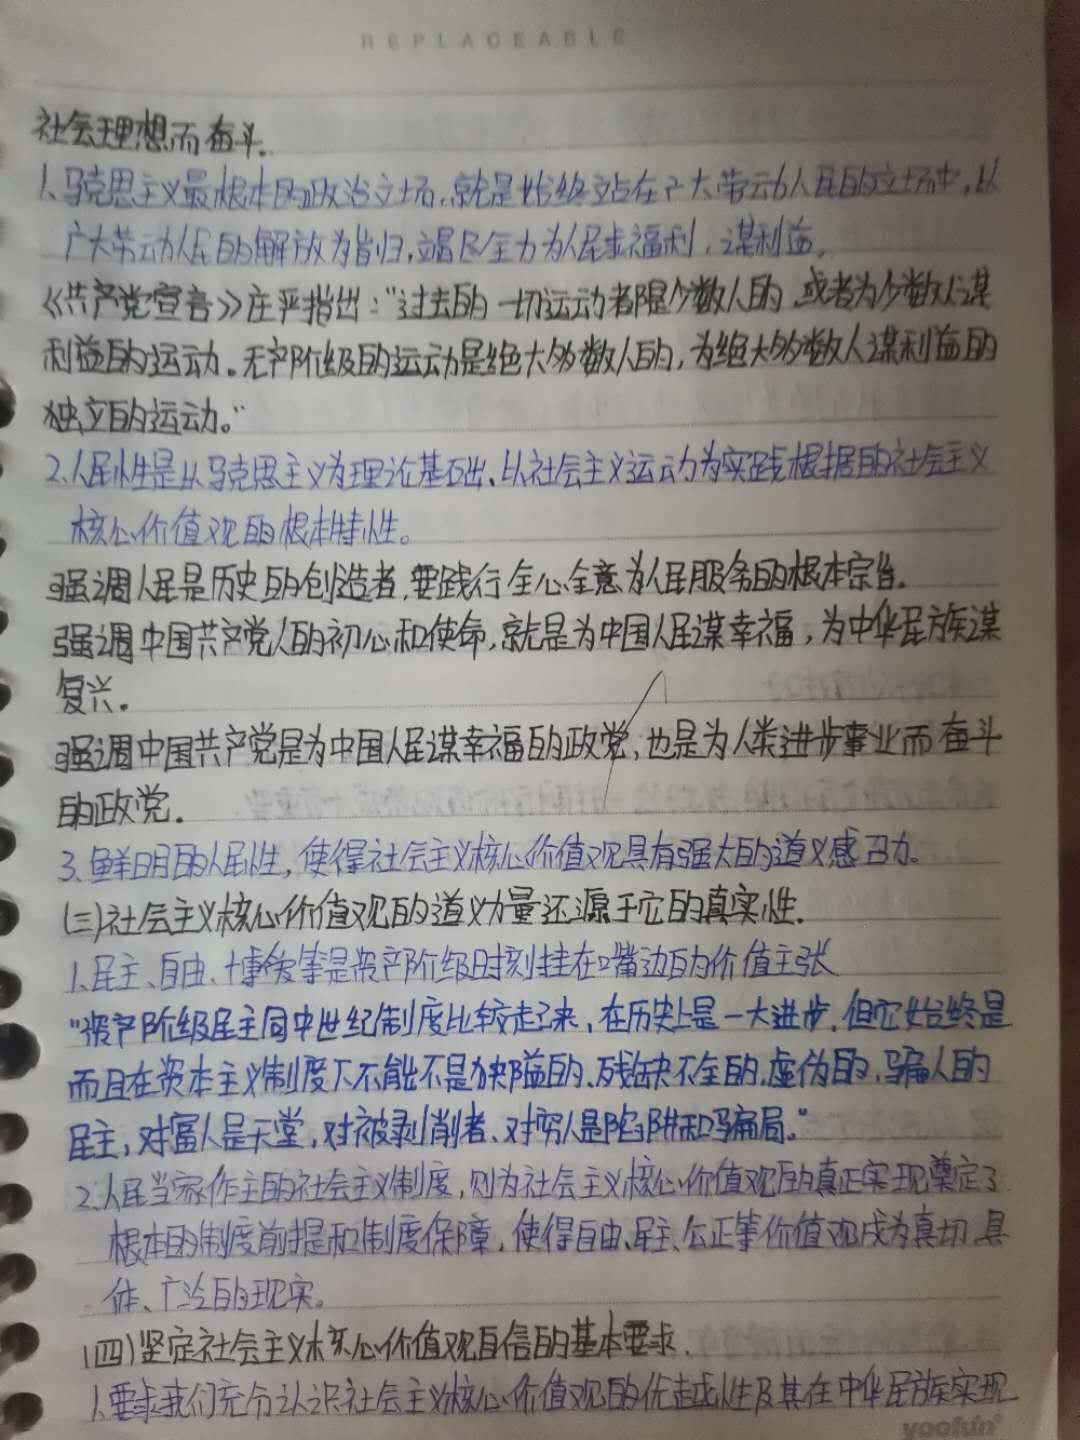 REPLACEABLE
社会理想而奋斗.
1、马克思主义最根本的政治立场,就是始终站在广大劳动人民的立场中,以
广大劳动人民的解放为旨归,竭尽全力为人民求福利、谋利益。
《共产党宣言》庄严指出:“过去的一切运动都是少数人的 或者为少数人谋
利益的运动。无产阶级的运动是绝大多数人的,为绝大多数人谋利益的
独立的运动。”
2.人民性是以马克思主义为理论基础、以社会主义运动为实践根据的社会主义
核心价值观的根本特性。
强调人民是历史的创造者,要践行全心全意为人民服务的根本宗旨.
强调中国共产党人的初心和使命,就是为中国人民谋幸福,为中华民族谋
复兴.
强调中国共产党是为中国人民谋幸福的政党,也是为人类进步事业而奋斗
的政党.
3.鲜明的人民性,使得社会主义核心价值观具有强大的道义感召力。
(三)社会主义核心价值观的道义力量还源于它的真实性.
1、民主、自由、博爱等是资产阶级时刻挂在嘴边的价值主张
“资产阶级民主同中世纪制度比较起来,在历史上是一大进步,但它始终是
而且在资本主义制度下不能不是狭隘的、残缺不全的,虚伪的,骗人的
民主,对富人是天堂,对被剥削者、对穷人是陷阱和骗局。”
2.人民当家作主的社会主义制度,则为社会主义核心价值观的真正实现奠定了
根本的制度前提和制度保障,使得自由、民主、公正等价值观成为真切、具
体、广泛的现实。
(四)坚定社会主义核心价值观自信的基本要求.
1.要求我们充分认识社会主义核心价值观的优越性及其在中华民族实现
yoofun